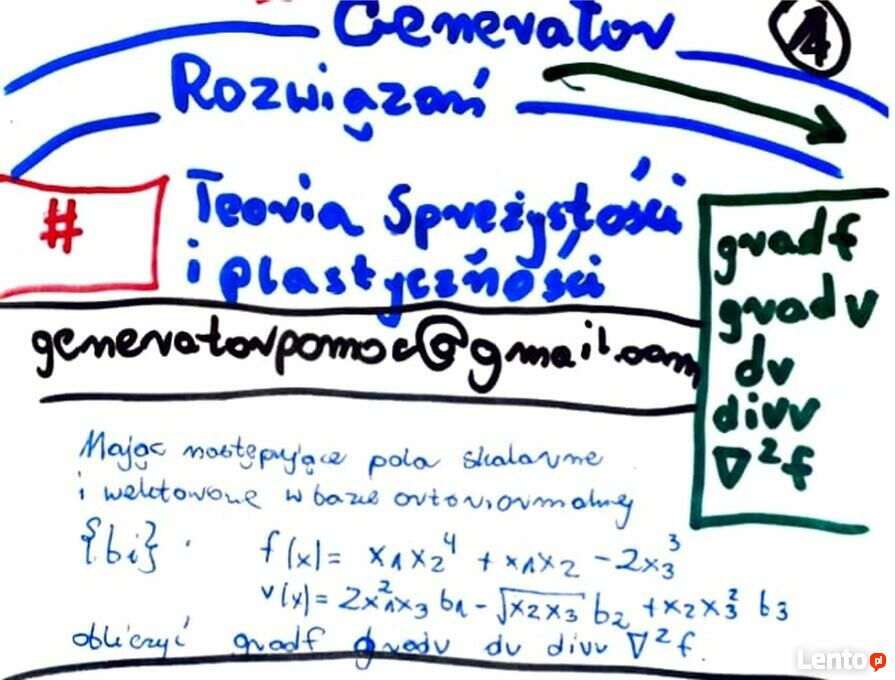 Generator
1
Rozwiązań
#
Teoria Sprężystości
i plastyczności
generatorpomoc@gmail.com
grad f
grad v
dv
div v
∇²f
Mając następujące pola skalarne
i wektorowe w bazie ortonormalnej
{bi}. f(x) = x1x2⁴ + x1x2 - 2x3³
v(x) = 2x1²x3 b1 - √x2x3 b2 + x2x3² b3
obliczyć grad f grad v dv div v ∇²f.
Lento.pl